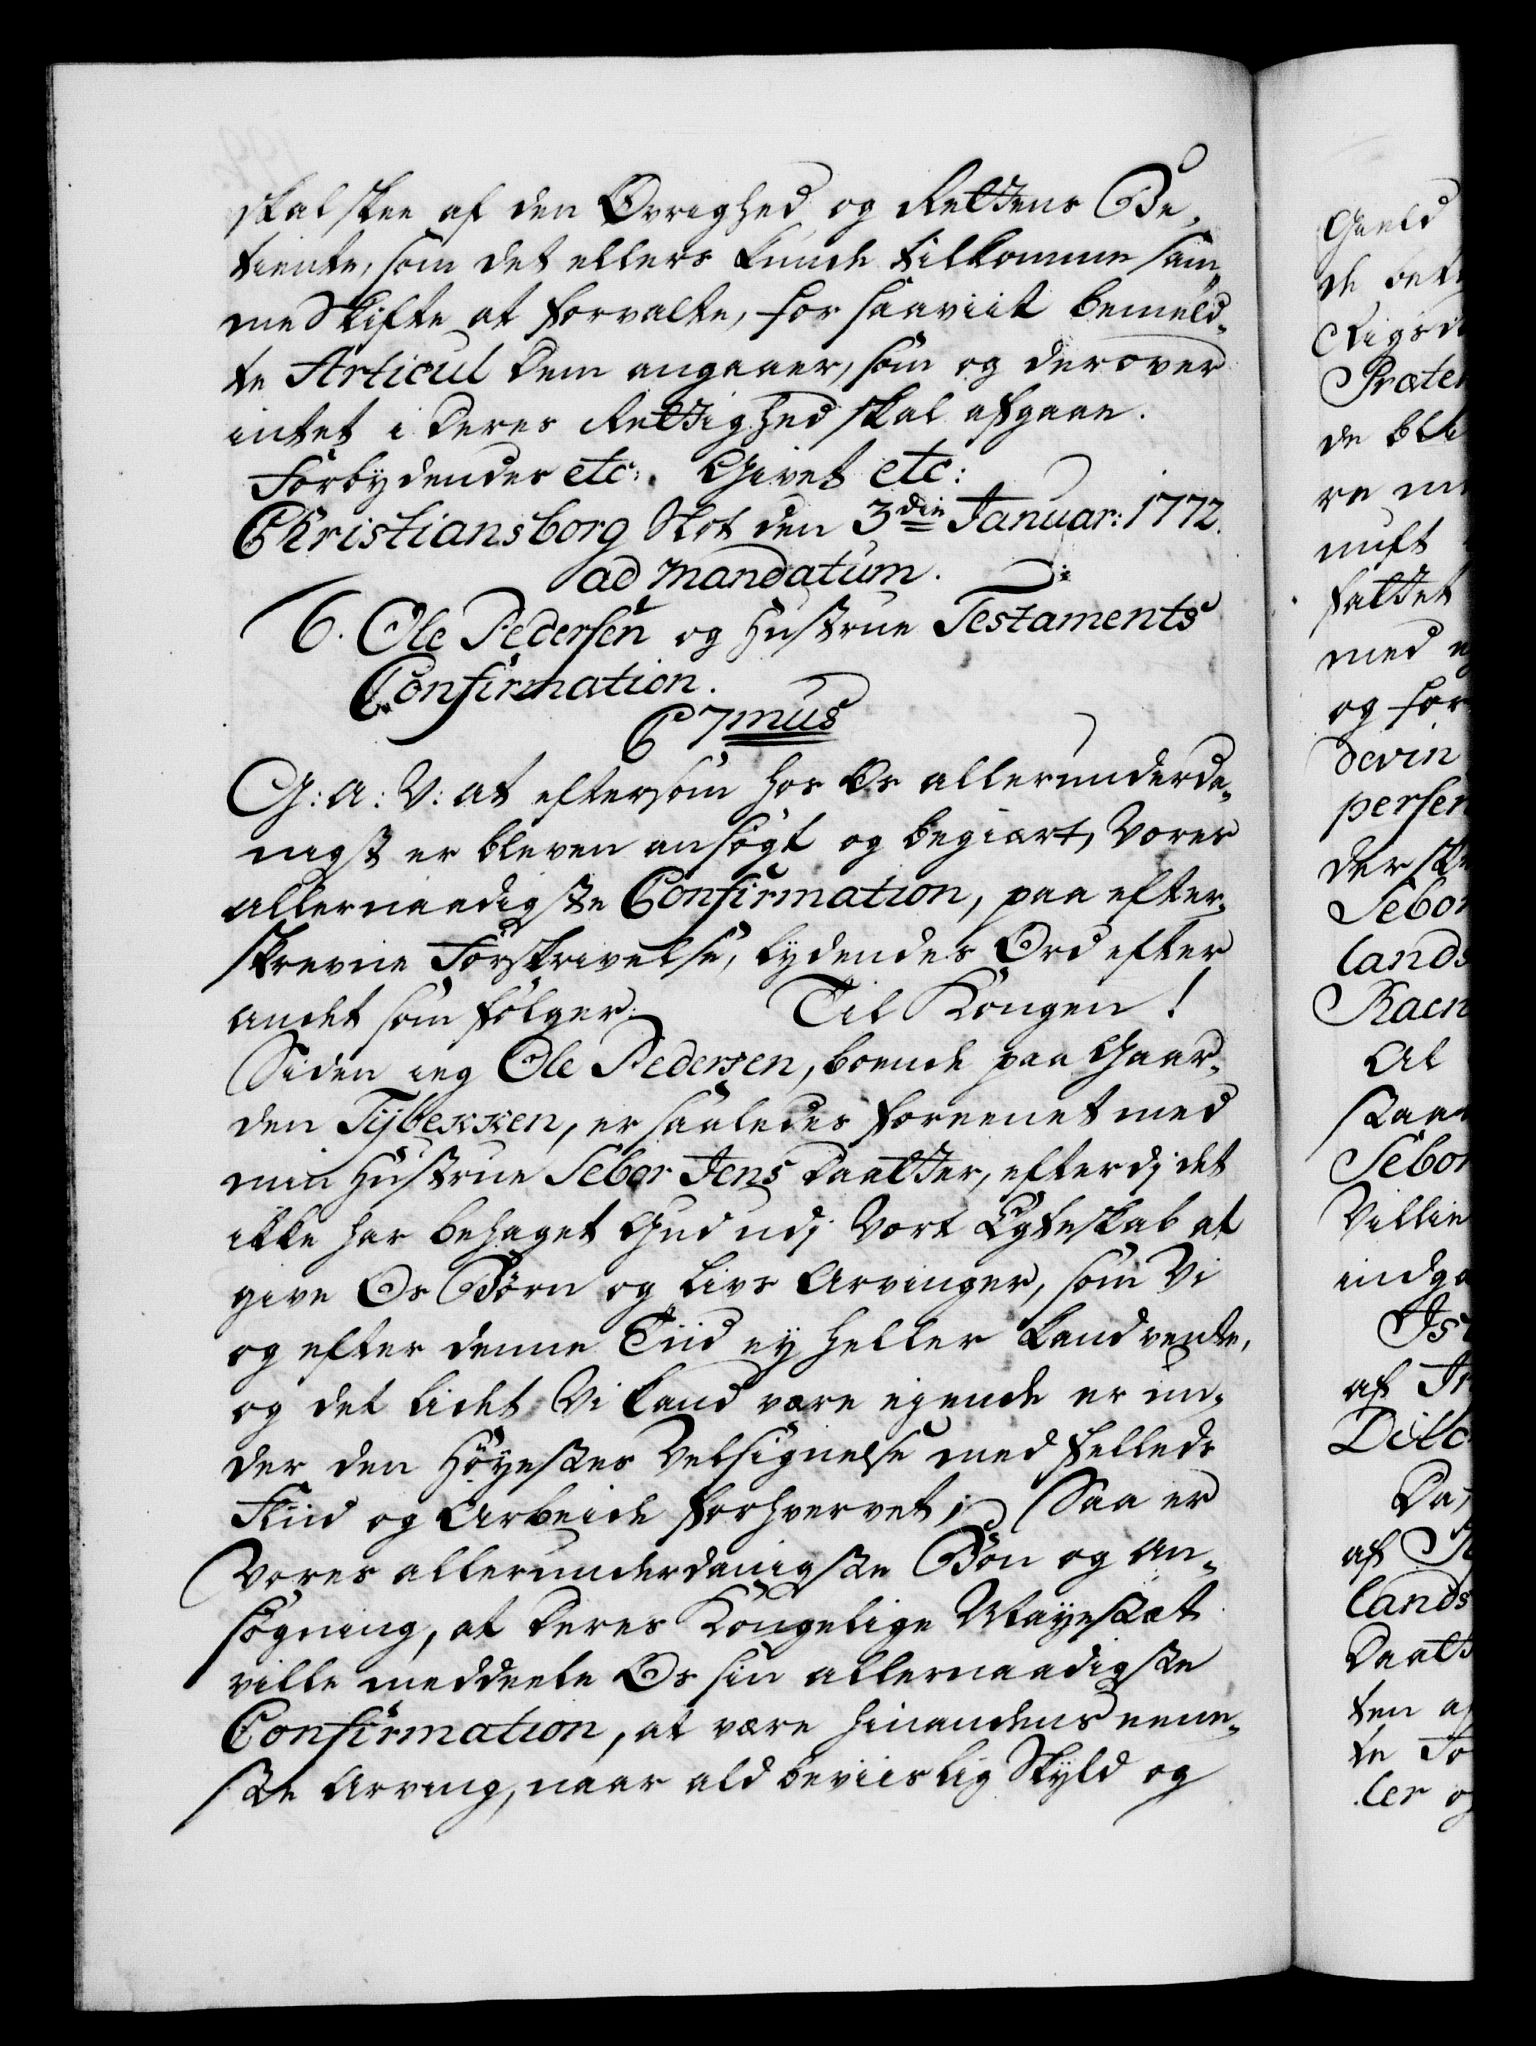 skal skee af den Øvrighed og Rettens Be„
tiente, som det ellers kunde tilkomme sam„
me Skifte at forvalte, for saaviit bemeld„
te Articul dem angaaer, som og derover
intet i deres Rettighed skal afgaae.
Forbydendes etc:. Givet etc:
Christiansborg Slot den 3die Januar: 1772.
ad mandatum.
6. Ole Pedersen og Hustrue Testaments
Confirmation.
C 7mus
G: A: V: at eftersom hos Os allerunderda„
nigst er bleven ansøgt og begiært, Vores
allernaadigste Confirmation, paa efter„
skrevne Forskrivelse, lydendes Ord efter
andet som følger: Til Kongen!
Siden ieg Ole Pedersen, boende paa Gaar„
den Tybekken, er saaledes foreenet med
min Hustrue Sebor Jens Daatter, efterdj det
ikke har behaget Gud udj Vort Egteskab at
give Os Børn og Livs Arvinger, som Vi
og efter denne Tiid ey heller kand vente,
og det lidet Vi kand være ejende er un„
der den Høyestes Velsignelse med felleds
Fliid og Arbeide forhvervet; Saa er
Vores allerunderdanigste Bøn og An„
søgning, at Deres Kongelige Mayestæt
ville meddeele Os sin allernaadigste
Confirmation, at være hinandens eene„
ste Arving, naar ald beviislig Skyld og
Gield
de bet
Rigsd
Præte
de bl
re m
nuft
fattet
med
og for
devin
persen
der sk
Sebor
lands
Raen
Al
staa
Sebor
Villie
indga
Is
af
Dito
Da
af
lands
Daatt
ten
te
ler